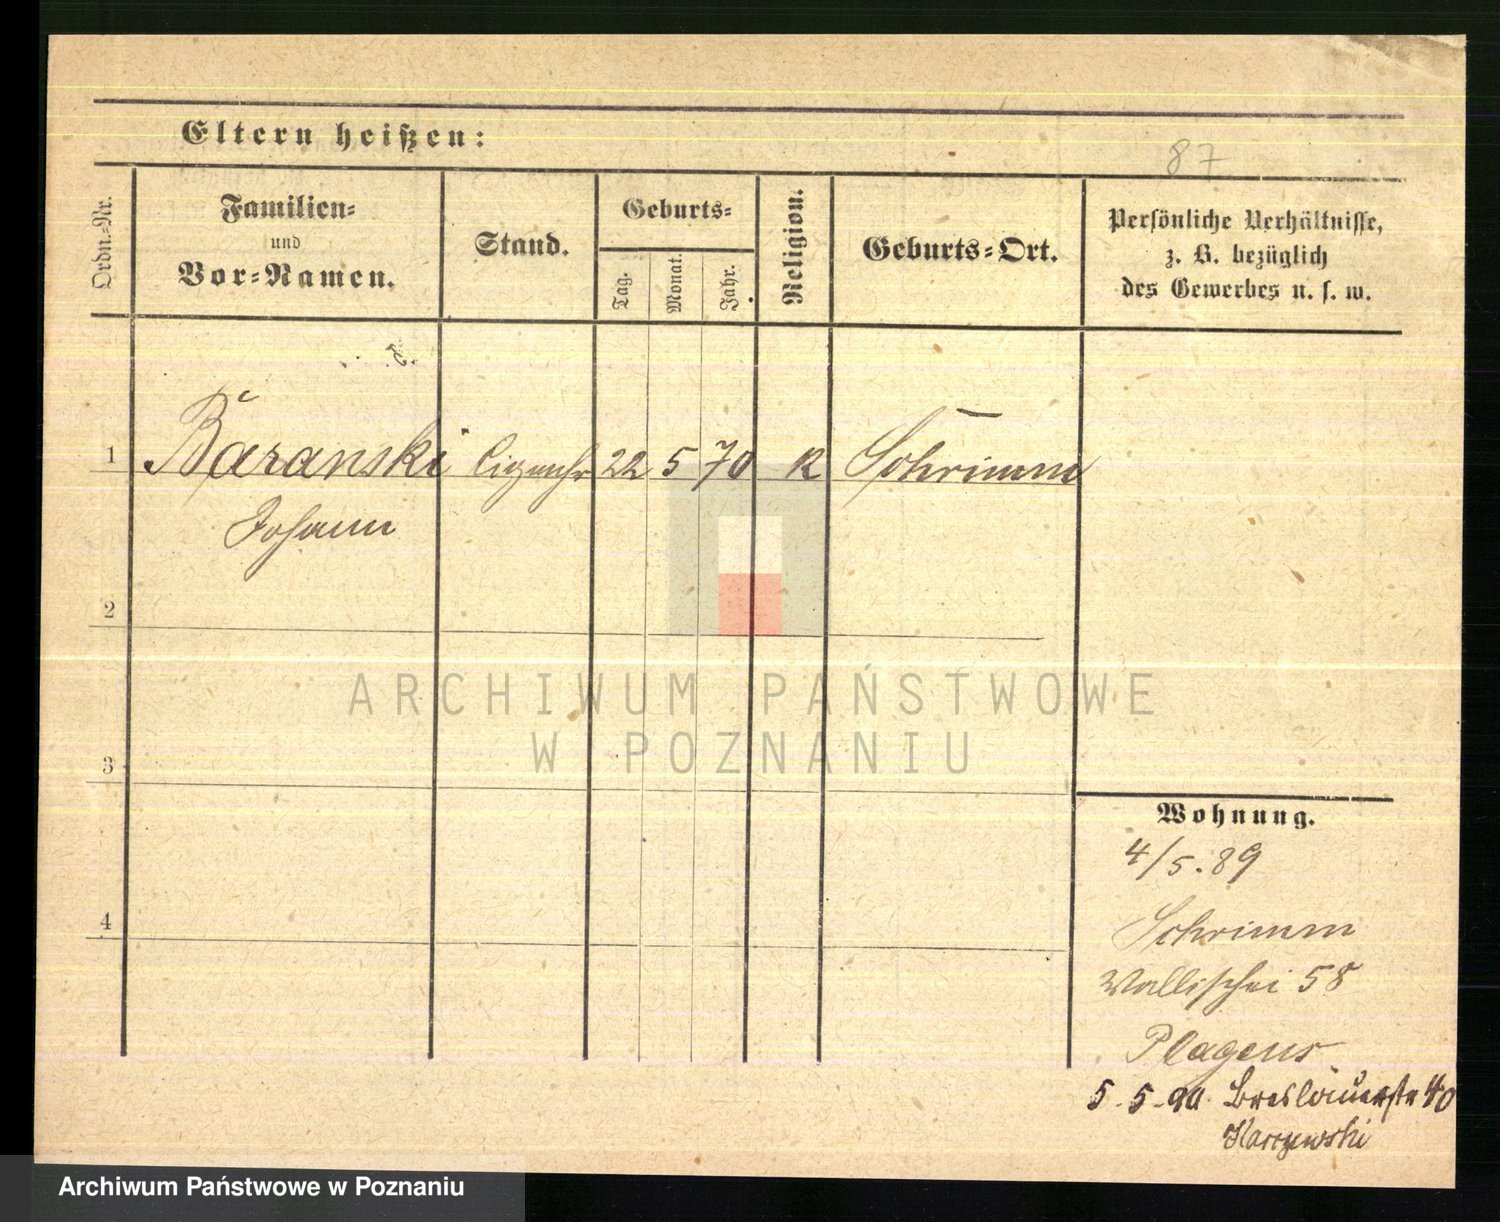 Eltern heißen:
87
Ordn.-Nr.
Familien-
und
Vor-Namen.
Stand.
Geburts-
Tag.
Monat.
Jahr.
Religion.
Geburts-Ort.
Persönliche Verhältnisse,
z. B. bezüglich
des Gewerbes u. s. w.
1 Baranski 22 5 70 K Schrimm
Johann
2
3
4
Wohnung.
4/5.89
Schrimm
Wallischei 58
Plagens
5.5.90. Breslauerstr 40
Karczewski
ARCHIWUM PAŃSTWOWE
W POZNANIU
Archiwum Państwowe w Poznaniu